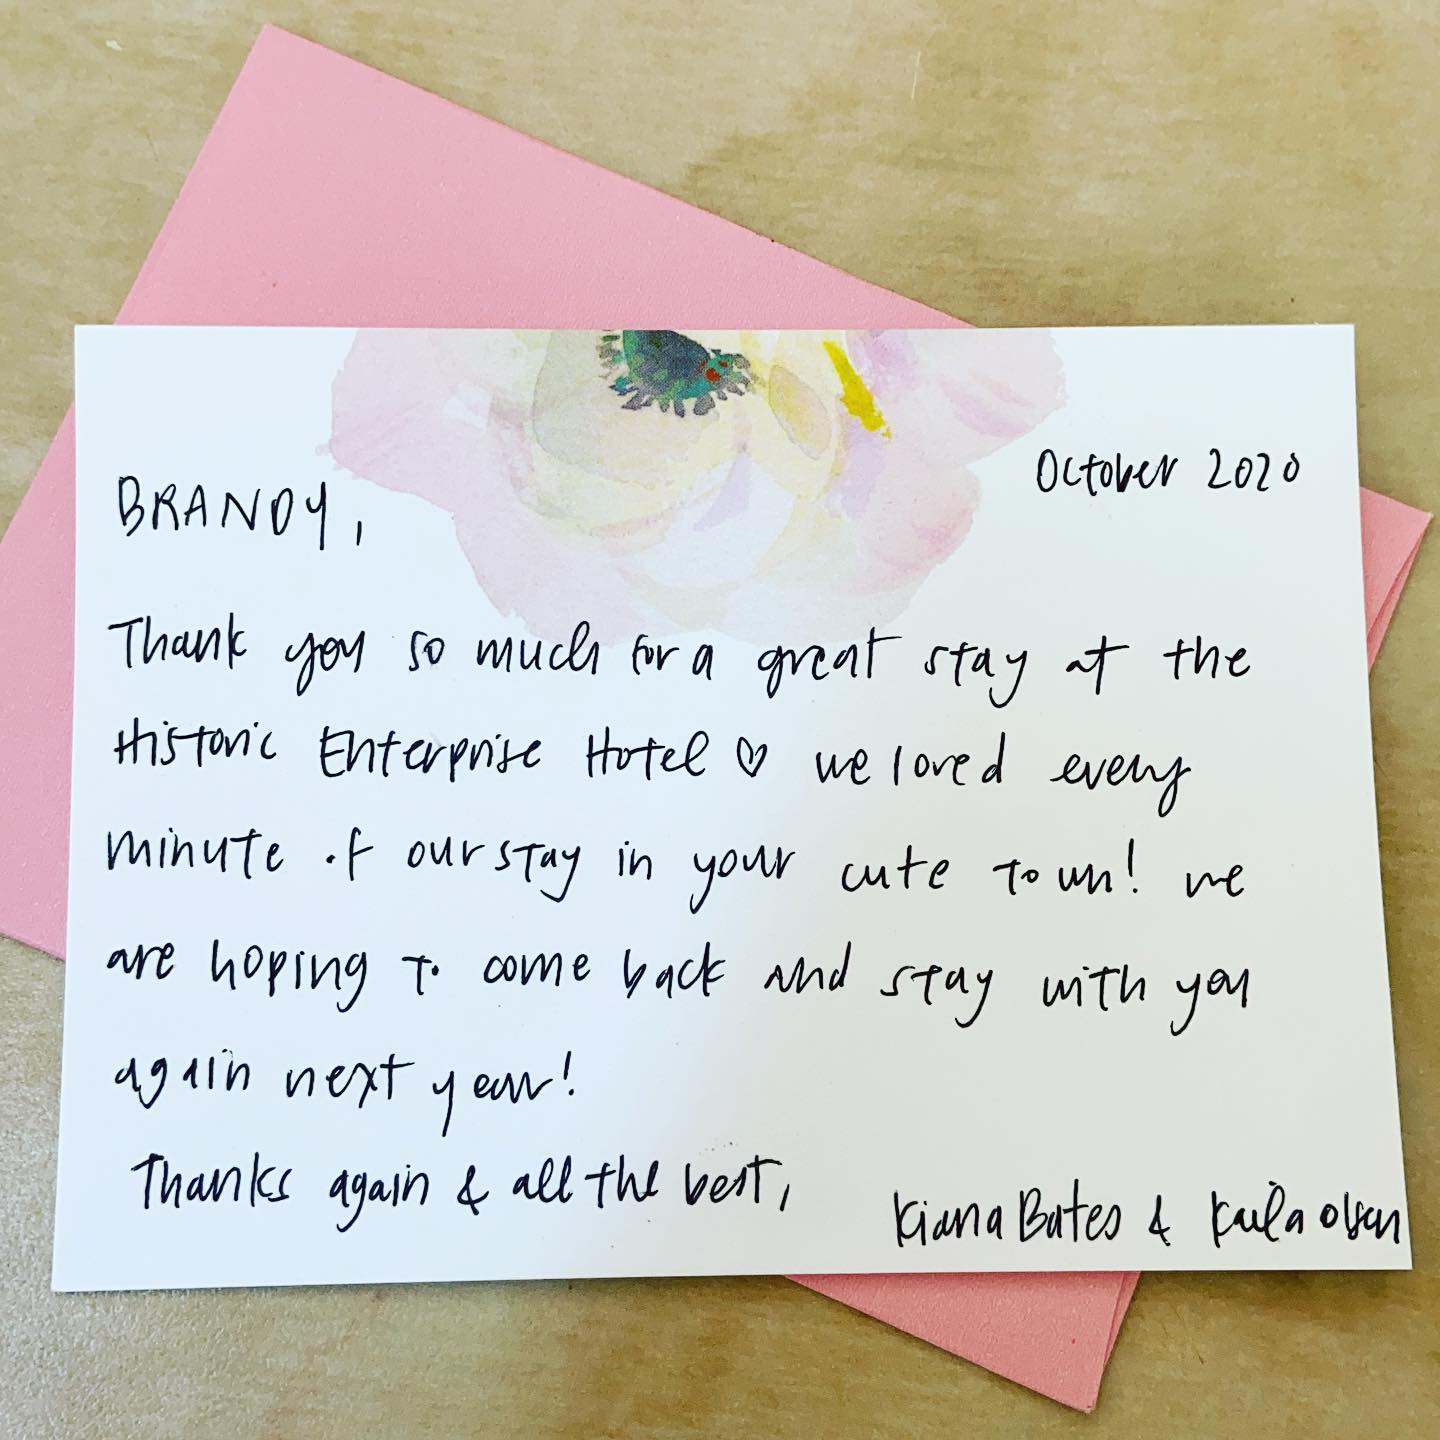 October 2020
BRANDY,
Thank you so much for a great stay at the
Historic Enterprise Hotel ♡ we loved every
minute of our stay in your cute town! we
are hoping to come back and stay with you
again next year!
Thanks again & all the best,
Kiana Bates & Kaila Olsen